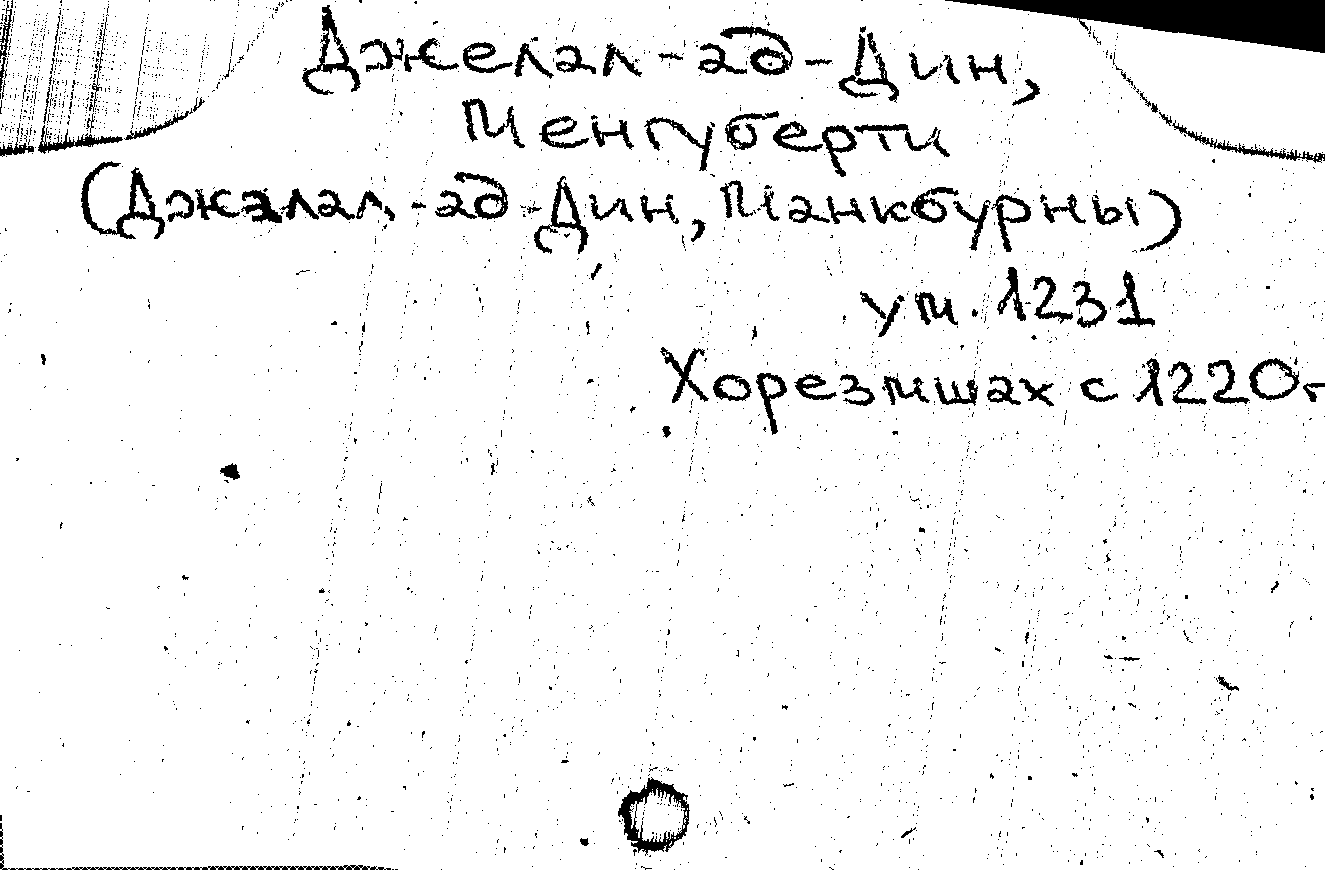 Джелал-ад-Дин,
Менгуберти
(Джалал-ад-Дин, Манкбурны)
ум. 1231
Хорезмшах с 1220г